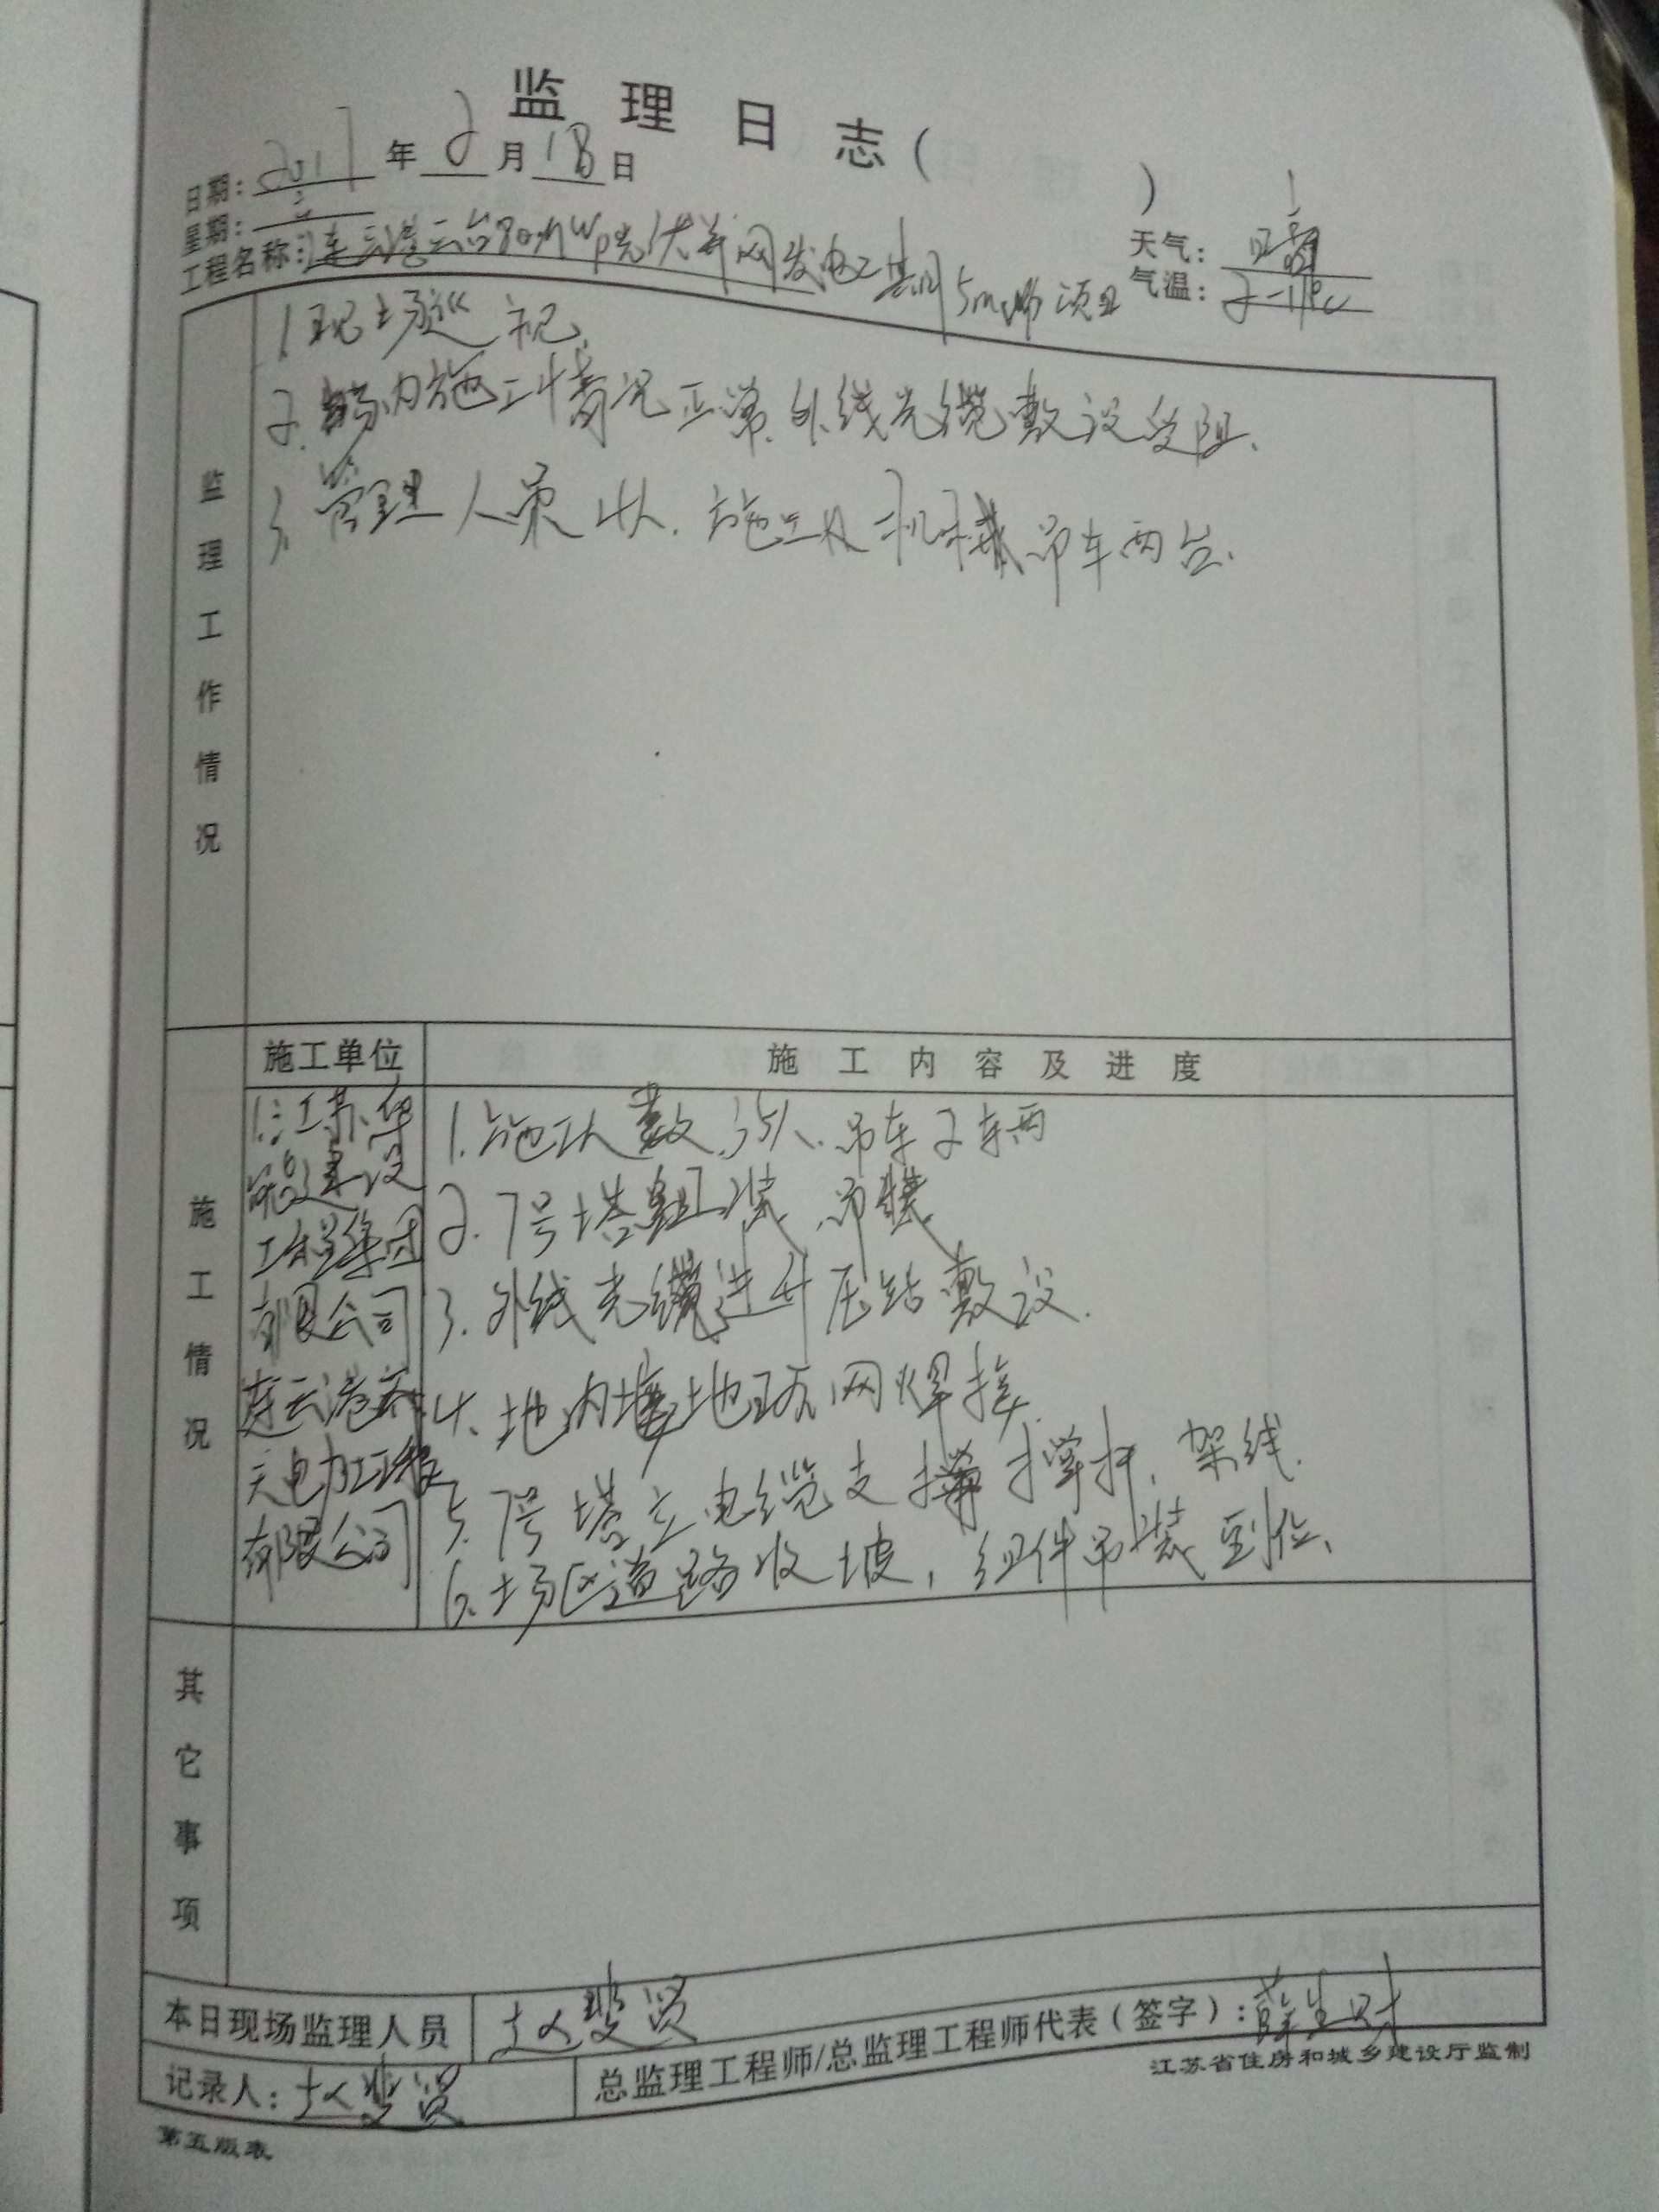 监理日志(　　)
日期:2017年2月18日
星期:
天气:晴
工程名称:连云港云台80MWp光伏并网发电工 5m 项目
气温:2-11℃
监理工作情况
1.现场巡视.
2.场内施工情况正常.外线光缆敷设受阻.
3.管理人员4人.施工 机械吊车两台.
施工情况
施工单位
施工内容及进度
1.江苏华
建设
工程集团
有限公司
连云港
天电力工程
有限公司
1.施工人数35人.吊车2车两
2.7号塔组装、吊装
3.外线光缆进升压站敷设.
4.地 内 地 网焊接.
5.7号塔立电缆支撑 杆、架线.
6.场区道路收坡,组件吊装到位、
其它事项
本日现场监理人员
赵斐贤
记录人:赵斐贤
总监理工程师/总监理工程师代表(签字):薛生财
江苏省住房和城乡建设厅监制
第五版表